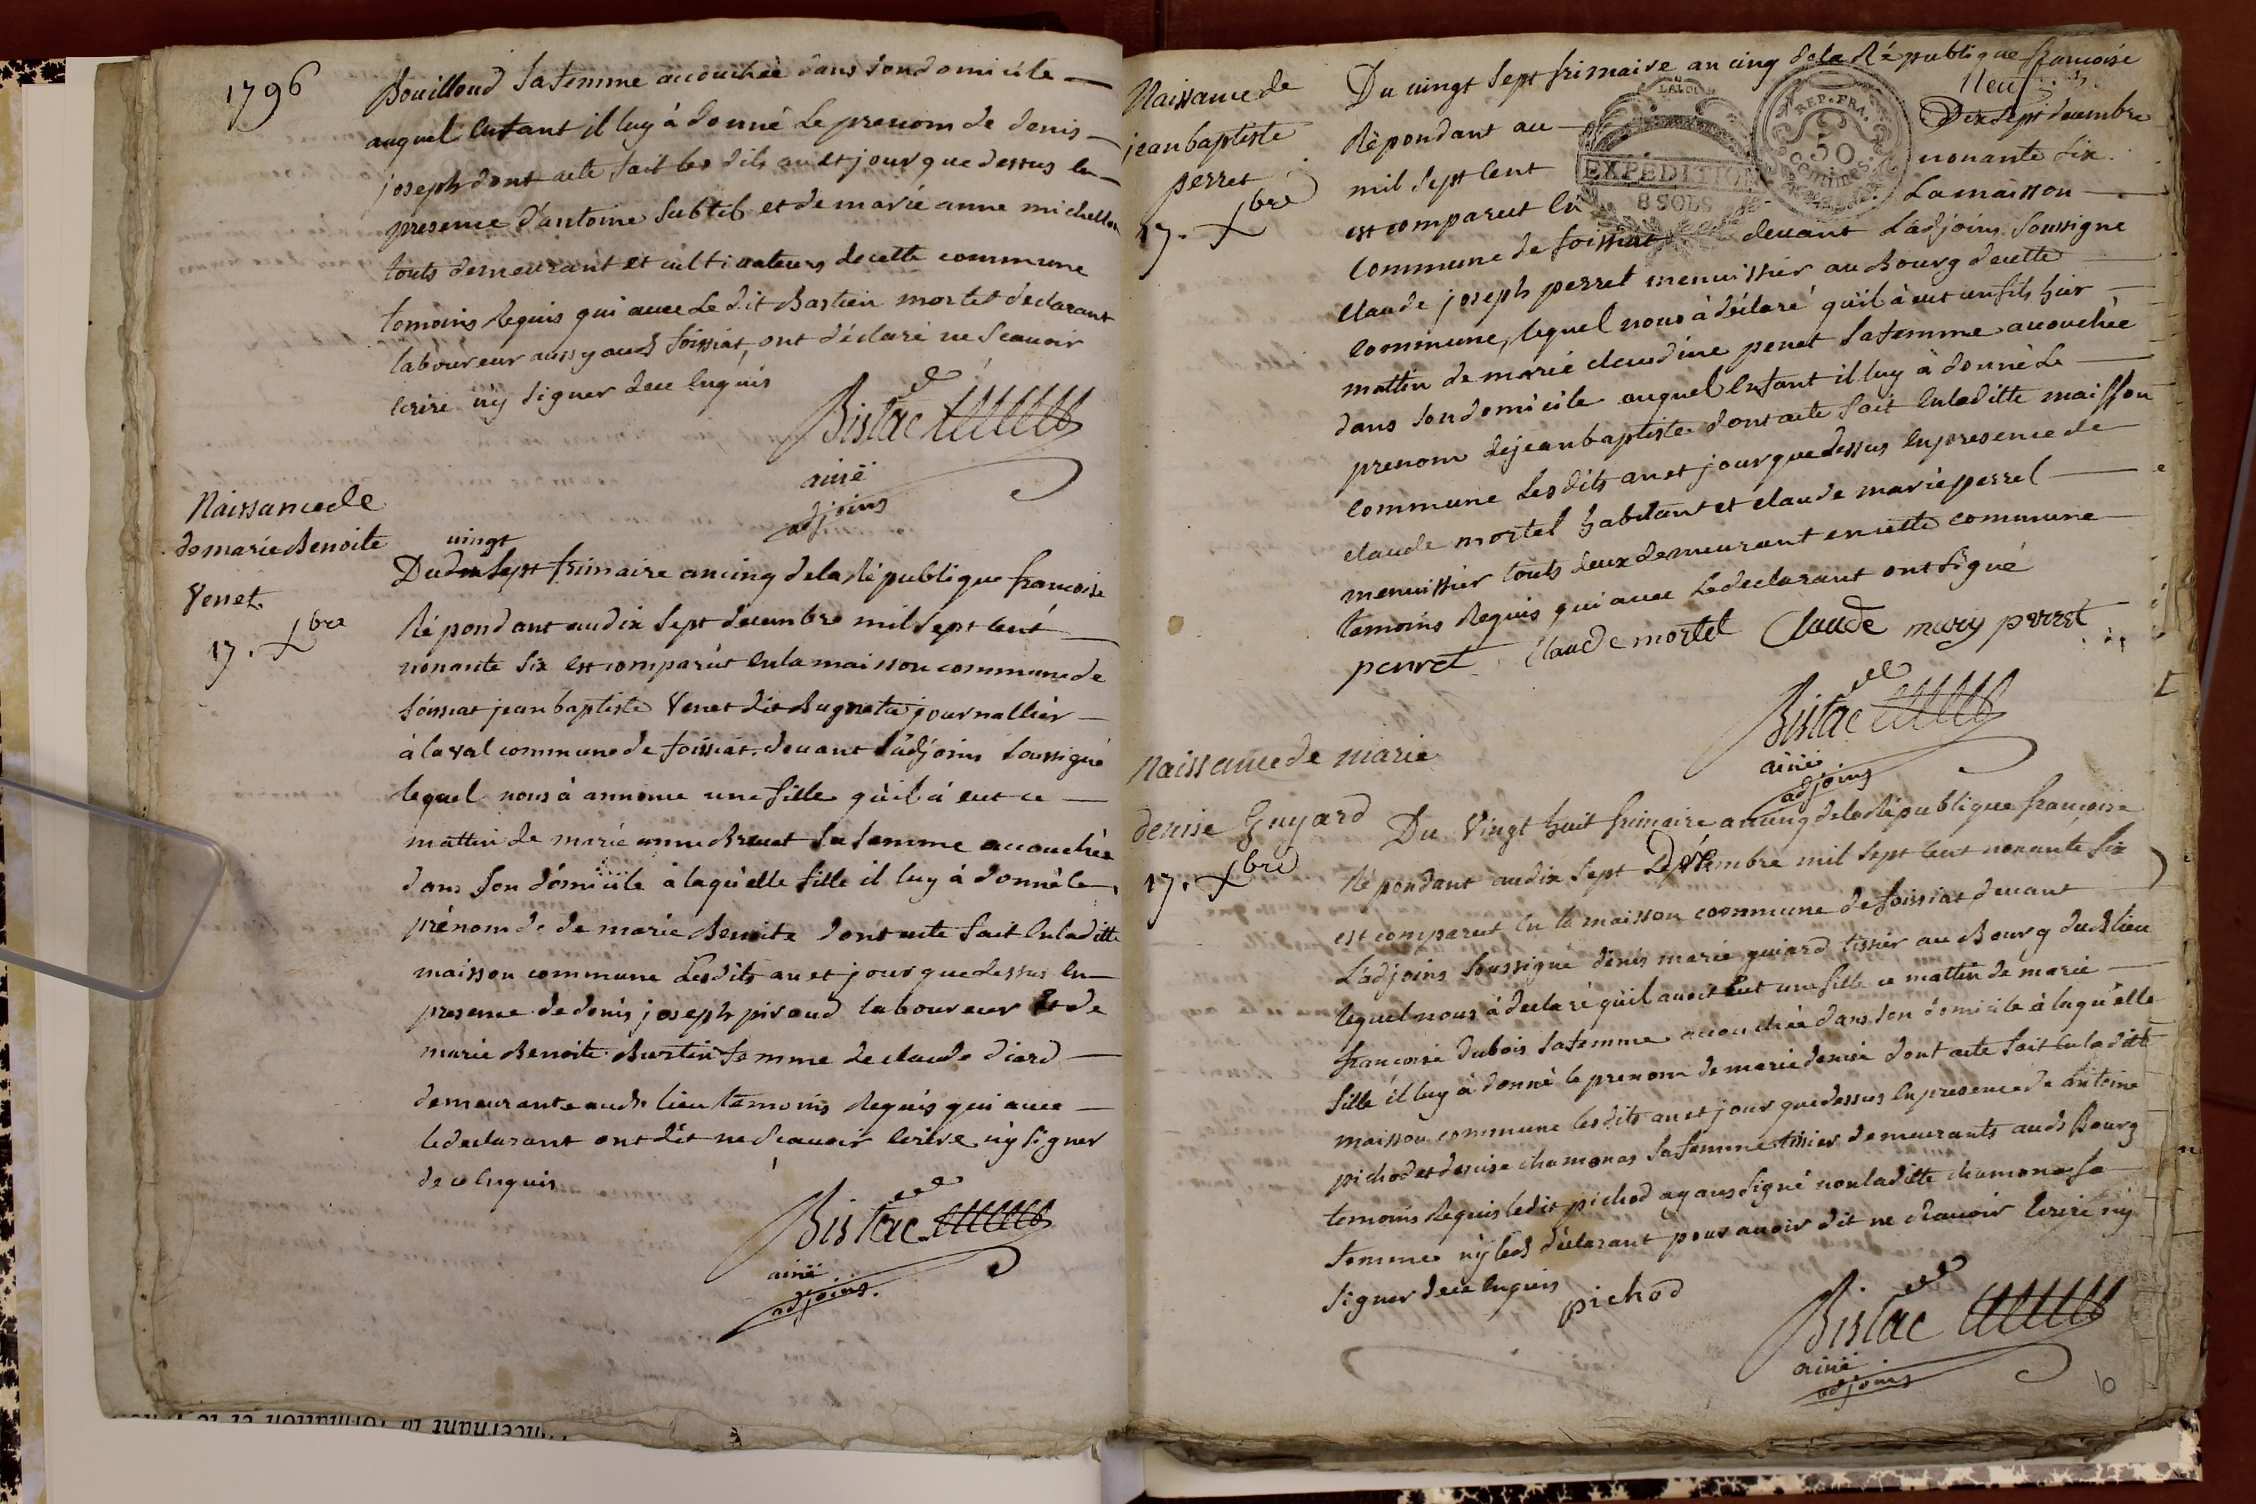 1796
Bouilloud sa femme accouchée dans son domicile
auquel enfant il luy à donné le prenom de denis
joseph dont acte fait les dits an et jour que dessus en
presence d'antoine subtil et de marie anne michellon
touts demeurant et cultivateurs de cette commune
temoins requis qui avec le dit Bastien mortel declarant
laboureur aussy aud foissiat, ont déclaré ne scavoir
ecrire ny signer de ce enquis
Bistac
ainé
adjoins
Naissance de
de marie Benoite
Venet
17. Xbre
vingt
Du dix sept frimaire an cinq de la République francoise
Répondant au dix sept decembre mil sept cent
nonante six est comparut en la maison commune de
foissiat jean baptiste Venet dit Bugneta journallier
à laval commune de foissiat devant l'adjoins soussigné
lequel nous à annoncé une fille qu'il à eut ce
mattin de marie anne Brevet sa femme accouchée
dans son domicile à laqu'elle fille il luy à donné le
prénom de de marie Benoite dont acte fait en la ditte
maison commune les dits an et jour que dessus en
presence de denis joseph piroud laboureur et de
marie Benoite Burtin femme de claude diard
demeurante aud lieu temoins requis qui avec
le declarant ont dit ne scavoir ecrire ny signer
de ce enquis
Bistac
ainé
adjoins.
Naissance de
jean baptiste
perret
17. Xbre
Du vingt sept frimaire an cinq de la République francoise
Neuf
Répondant au Dix sept decembre
mil sept cent nonante six
est comparut en La maisson
commune de foissiat devant L'adjoins soussigne
LA LOI
EXPEDITION
8 SOLS
REP. FRA.
50
centimes
claude joseph perret menuissier au Bourg de cette
commune, lequel nous à déclaré qu'il à eut un fils hier
mattin de marie claudine penet sa femme accouchée
dans son domicile auquel enfant il luy à donné le
prenom de jean baptiste dont acte fait en la ditte maisson
commune les dits an et jour que dessus en presence de
claude mortel habitant et claude marie perret
menuissier touts deux demeurant en cette commune
temoins requis qui avec le declarant ont signé
perret claude mortel Claude mary perret
Bistac
ainé
adjoins
Naissance de marie
denise Guyard
17. Xbre
Du Vingt huit frimaire an cinq de la République françoise
Répondant au dix sept Décembre mil sept cent nonante six
est comparut en la maisson commune de foissiat devant
L'adjoins soussigné denis marie guiard tissier au Bourg dud lieu
lequel nous à declaré qu'il avoit eut une fille ce mattin de marie
francoise dubois sa femme accouchée dans son domicile à laqu'elle
fille il luy à donné le prenom de marie denise dont acte fait en la ditte
maisson commune les dits an et jour que dessus en presence de antoine
pichod et denise chamonas sa femme tissier demeurants aud Bourg
temoins requis le dit pichod ayans signé non la ditte chamonas sa
femme ny led déclarant pour avoir dit ne scavoir ecrire ny
signer de ce enquis
pichod
Bistac
ainé
adjoins